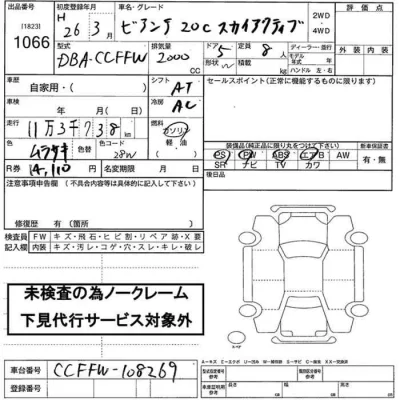 [18231]
1066
初度登録年月
H 26 3 月
車名・グレード
ビアンテ 20C スカイアクティブ
2WD
・
4WD
評価点
外装
内装
型式
DBA-CCFFW
排気量
2000
CC
ドア
5
形状
W
定員
8 人
積載
kg
ディーラー・並行
モデル年式
年
ハンドル 左・右
車歴
自家用・( )
シフト
AT
セールスポイント(正常に機能するものに限ります)
車検
年 月 日
冷房
AC
走行
11万3千738 km
燃料
ガソリン
軽油
色
ムラサキ
色替
カラーNo.
28W
装備品(純正品に限り丸をつけて下さい)
PS PW ABS エアB AW
SR ナビ TV カワ
新車保証書
有・無
R券
14,110
名変期限 月 日
後日品
注意事項申告欄(不具合内容等は具体的に記入)
修復歴 有(箇所 )
検査員記入欄
FW キズ・飛石・ヒビ割・リペア跡・X要
内装 キズ・汚レ・コゲ・穴・スレ・キレ・破レ
未検査の為ノークレーム
下見代行サービス対象外
スペア
車台番号
CCFFW-108269
登録番号
長さ cm
幅 cm
高さ cm